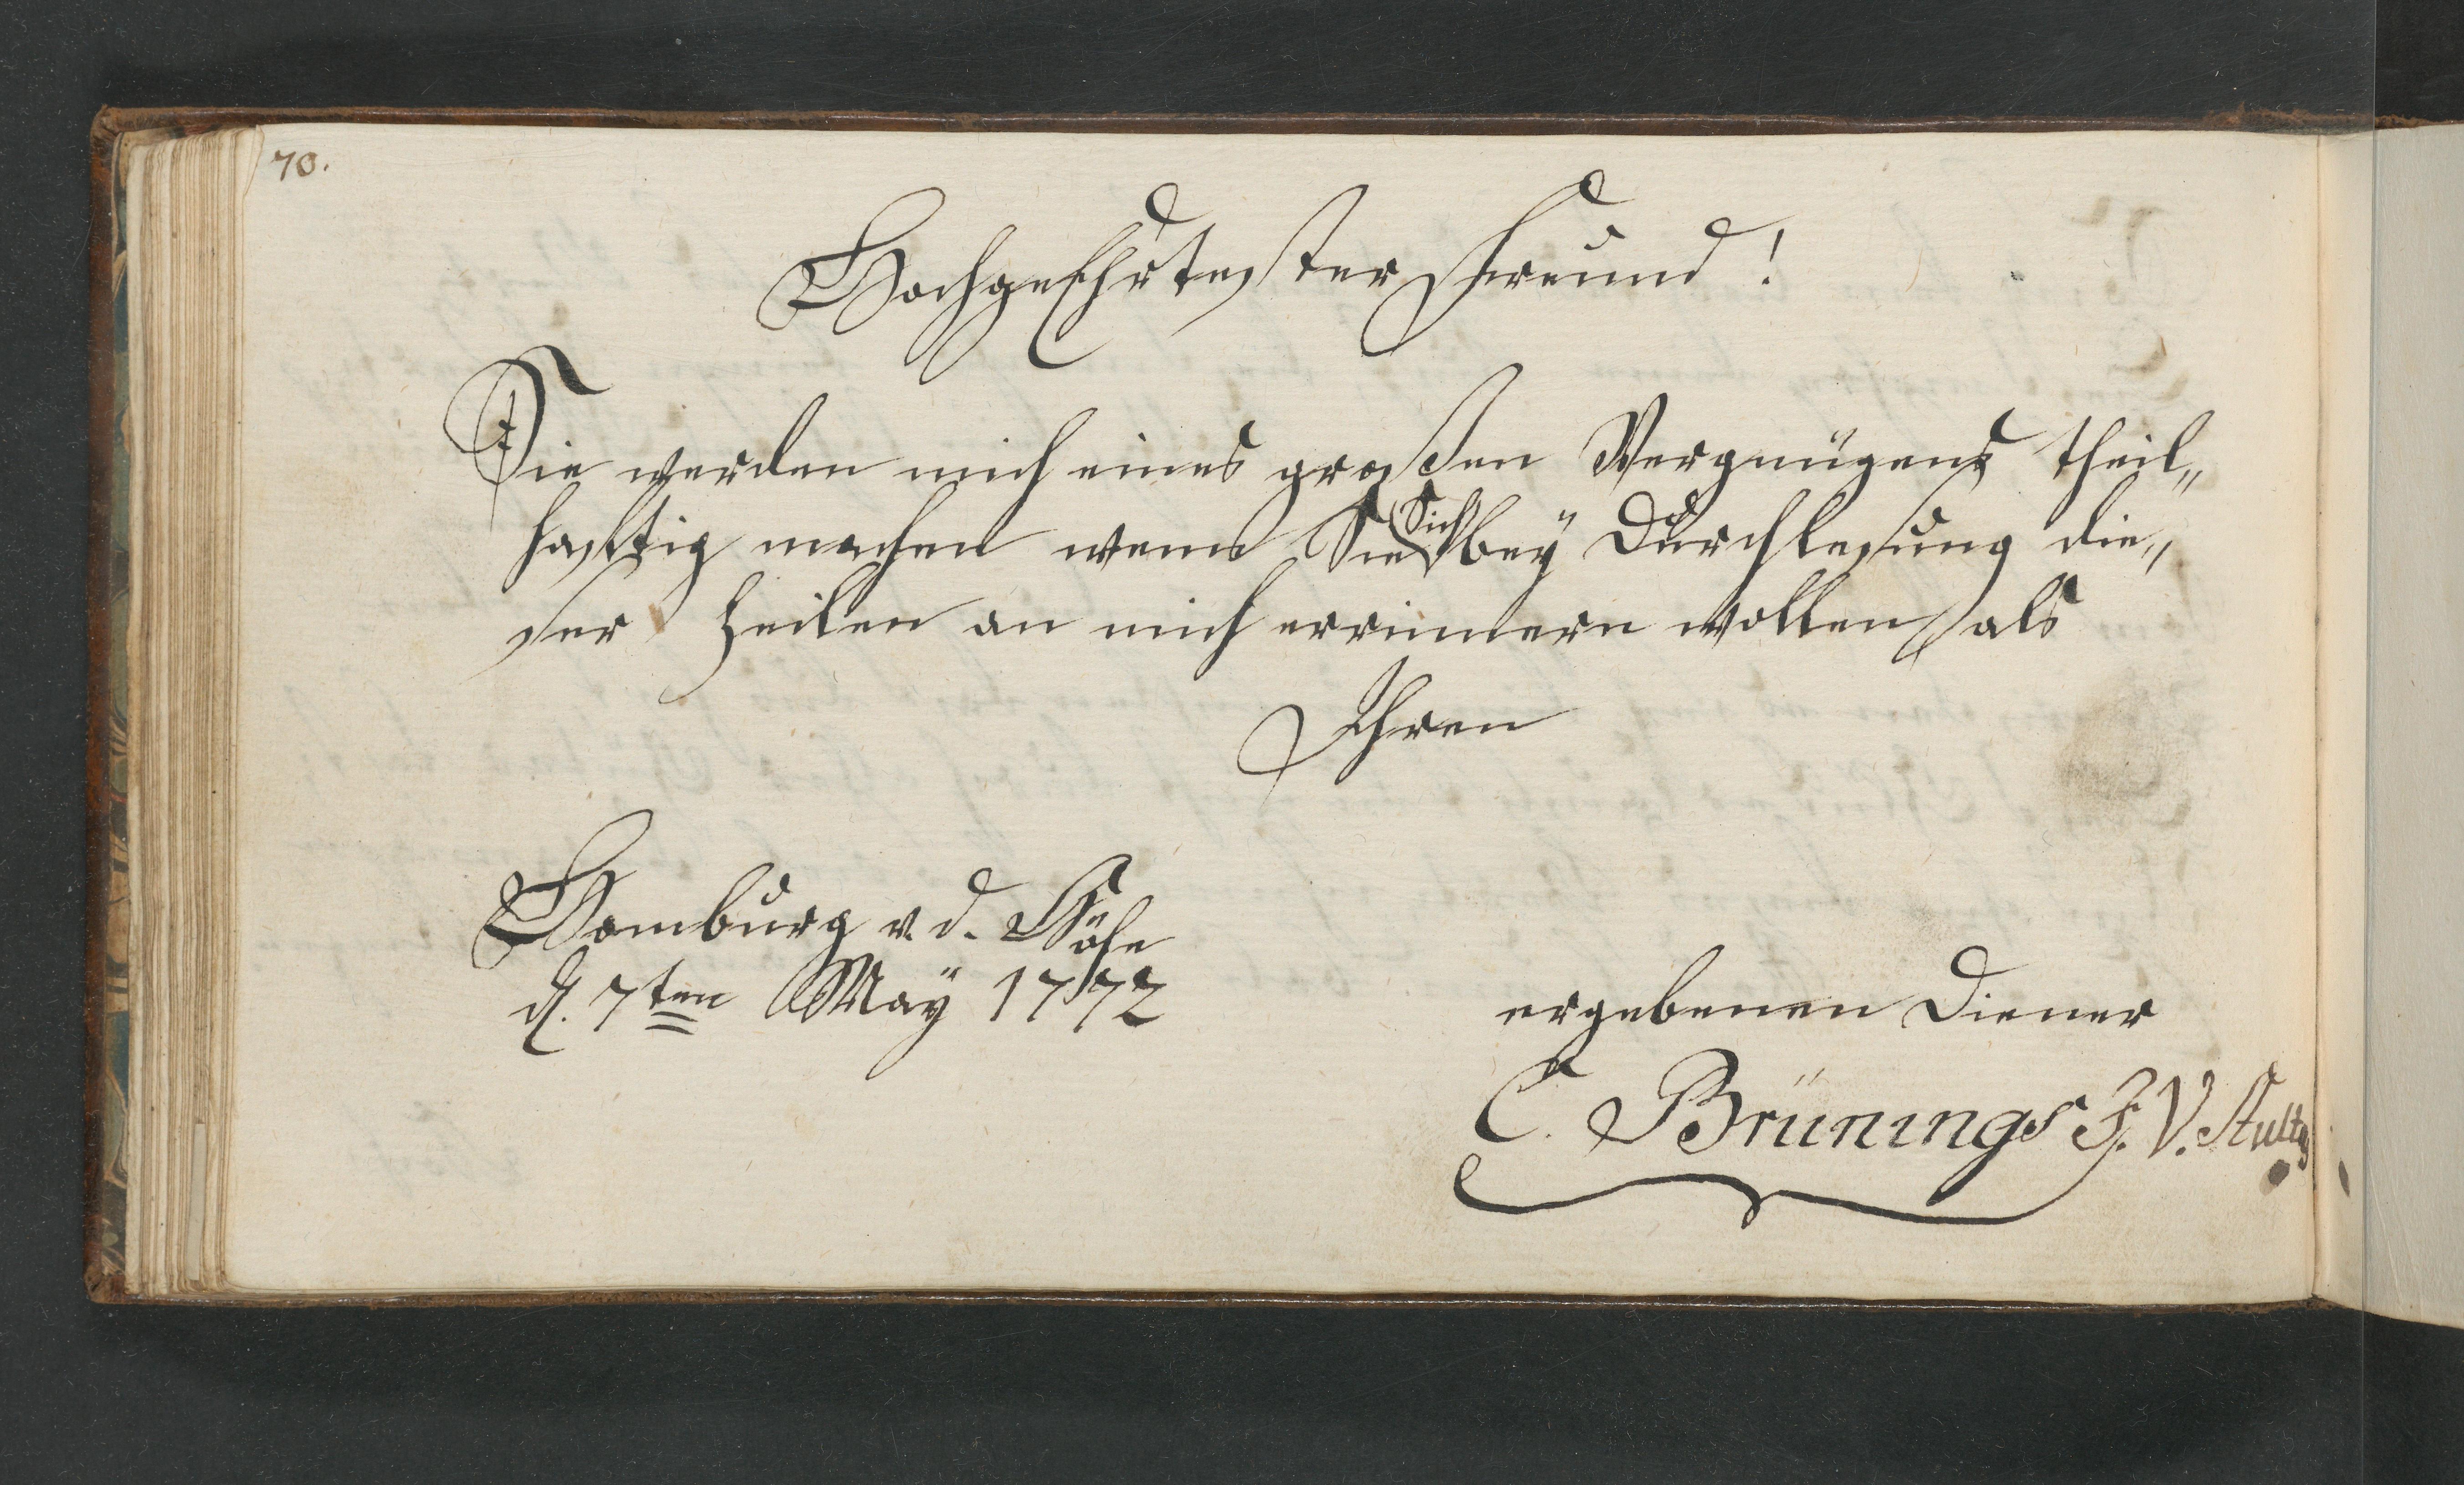 70.
HochgeEhrtester Freund!
Sie werden mich eines großen Vergnügens theil„
hafftig machen wenn Sie Sich bey Durchlesung die„
ser Zeilen an mich errinnern wollen als
Ihren
Homburg v. d. Höhe
d. 7ten May 1772
ergebenen Diener
C. Brünings J. V. Stult